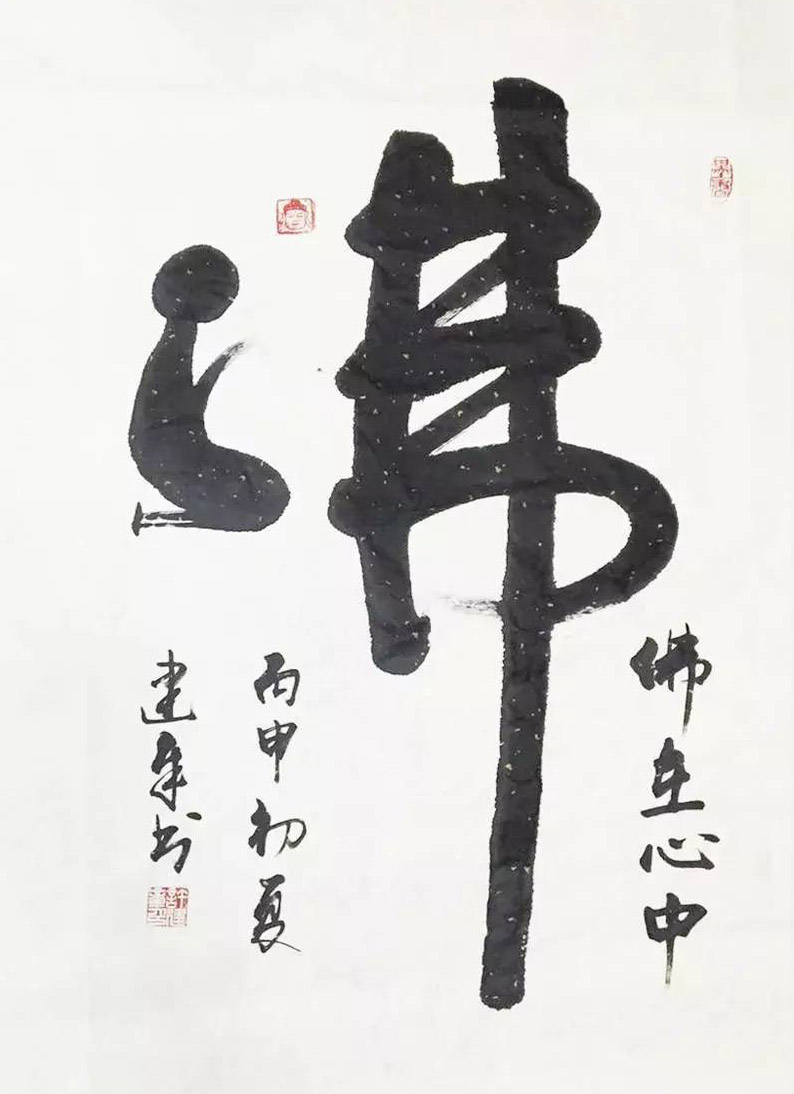 佛
佛在心中
丙申初夏
建军书